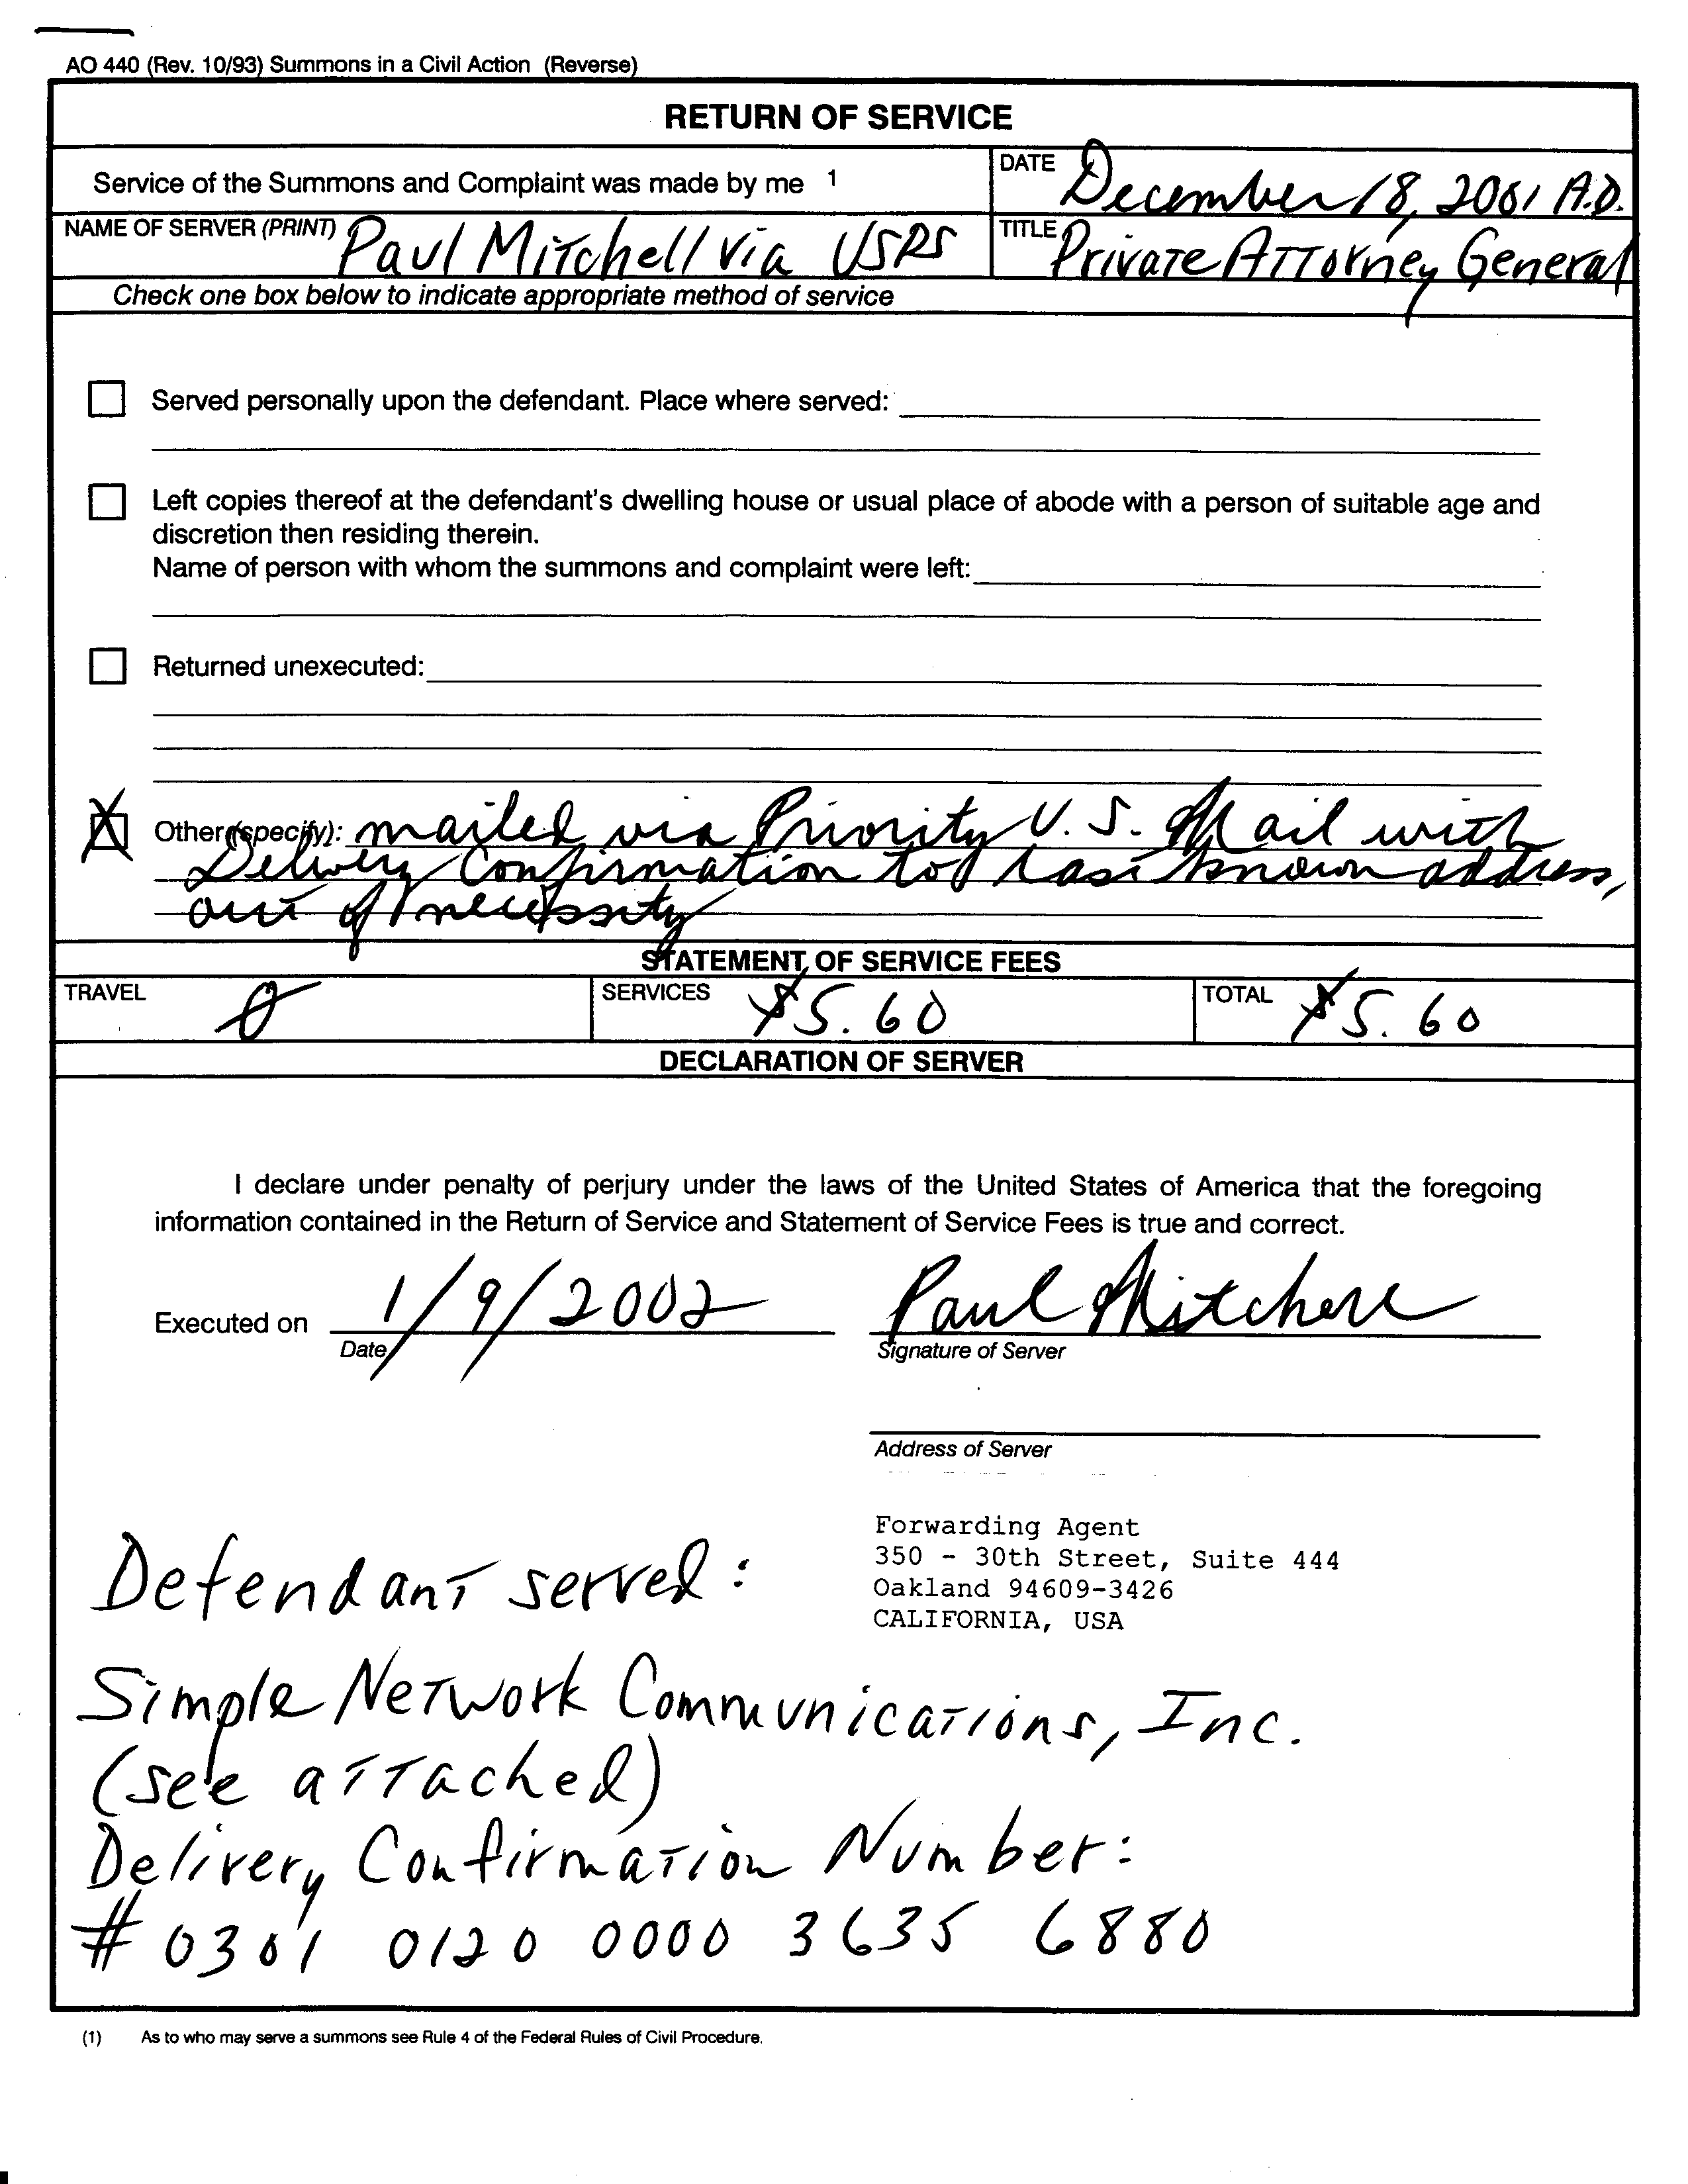 AO 440 (Rev. 10/93) Summons in a Civil Action (Reverse)
RETURN OF SERVICE
Service of the Summons and Complaint was made by me 1
DATE December 18, 2001 A.D.
NAME OF SERVER (PRINT) Paul Mitchell via USPS
TITLE Private Attorney General
Check one box below to indicate appropriate method of service
Served personally upon the defendant. Place where served:
Left copies thereof at the defendant's dwelling house or usual place of abode with a person of suitable age and
discretion then residing therein.
Name of person with whom the summons and complaint were left:
Returned unexecuted:
Other (specify): mailed via Priority U.S. Mail with
Delivery Confirmation to last known address,
out of necessity
STATEMENT OF SERVICE FEES
TRAVEL 0 SERVICES $5.60 TOTAL $5.60
DECLARATION OF SERVER
I declare under penalty of perjury under the laws of the United States of America that the foregoing
information contained in the Return of Service and Statement of Service Fees is true and correct.
Executed on 1/9/2002 Paul Mitchell
Date Signature of Server
Address of Server
Forwarding Agent
350 - 30th Street, Suite 444
Oakland 94609-3426
CALIFORNIA, USA
Defendant served:
Simple Network Communications, Inc.
(see attached)
Delivery Confirmation Number:
# 0301 0120 0000 3635 6880
(1) As to who may serve a summons see Rule 4 of the Federal Rules of Civil Procedure.